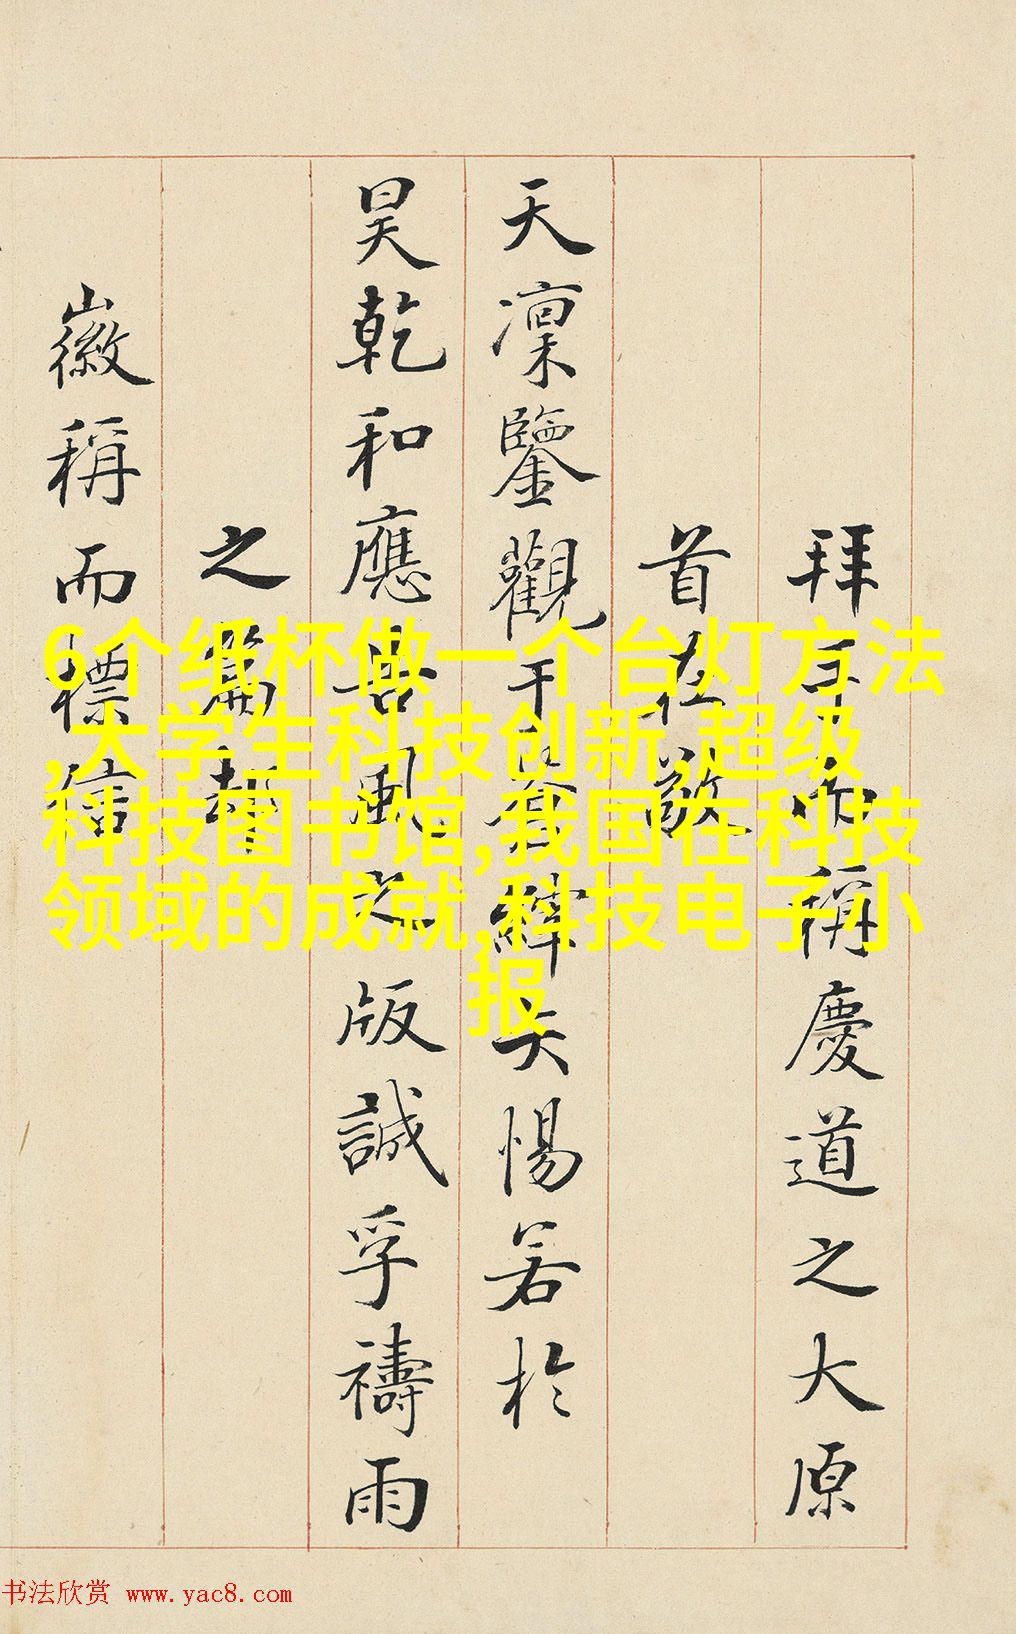 拜手而稱慶道之大原
首在敬
天凜鑒觀于於穆矢惕若於
昊乾和應喜風之版誠孚禱雨
之篇都
徽稱而標信
6个纸杯做一个台灯方法
,大学生科技创新,超级
科技图书馆,我国在科技
领域的成就,科技电子小
报
书法欣赏 www.yac8.com